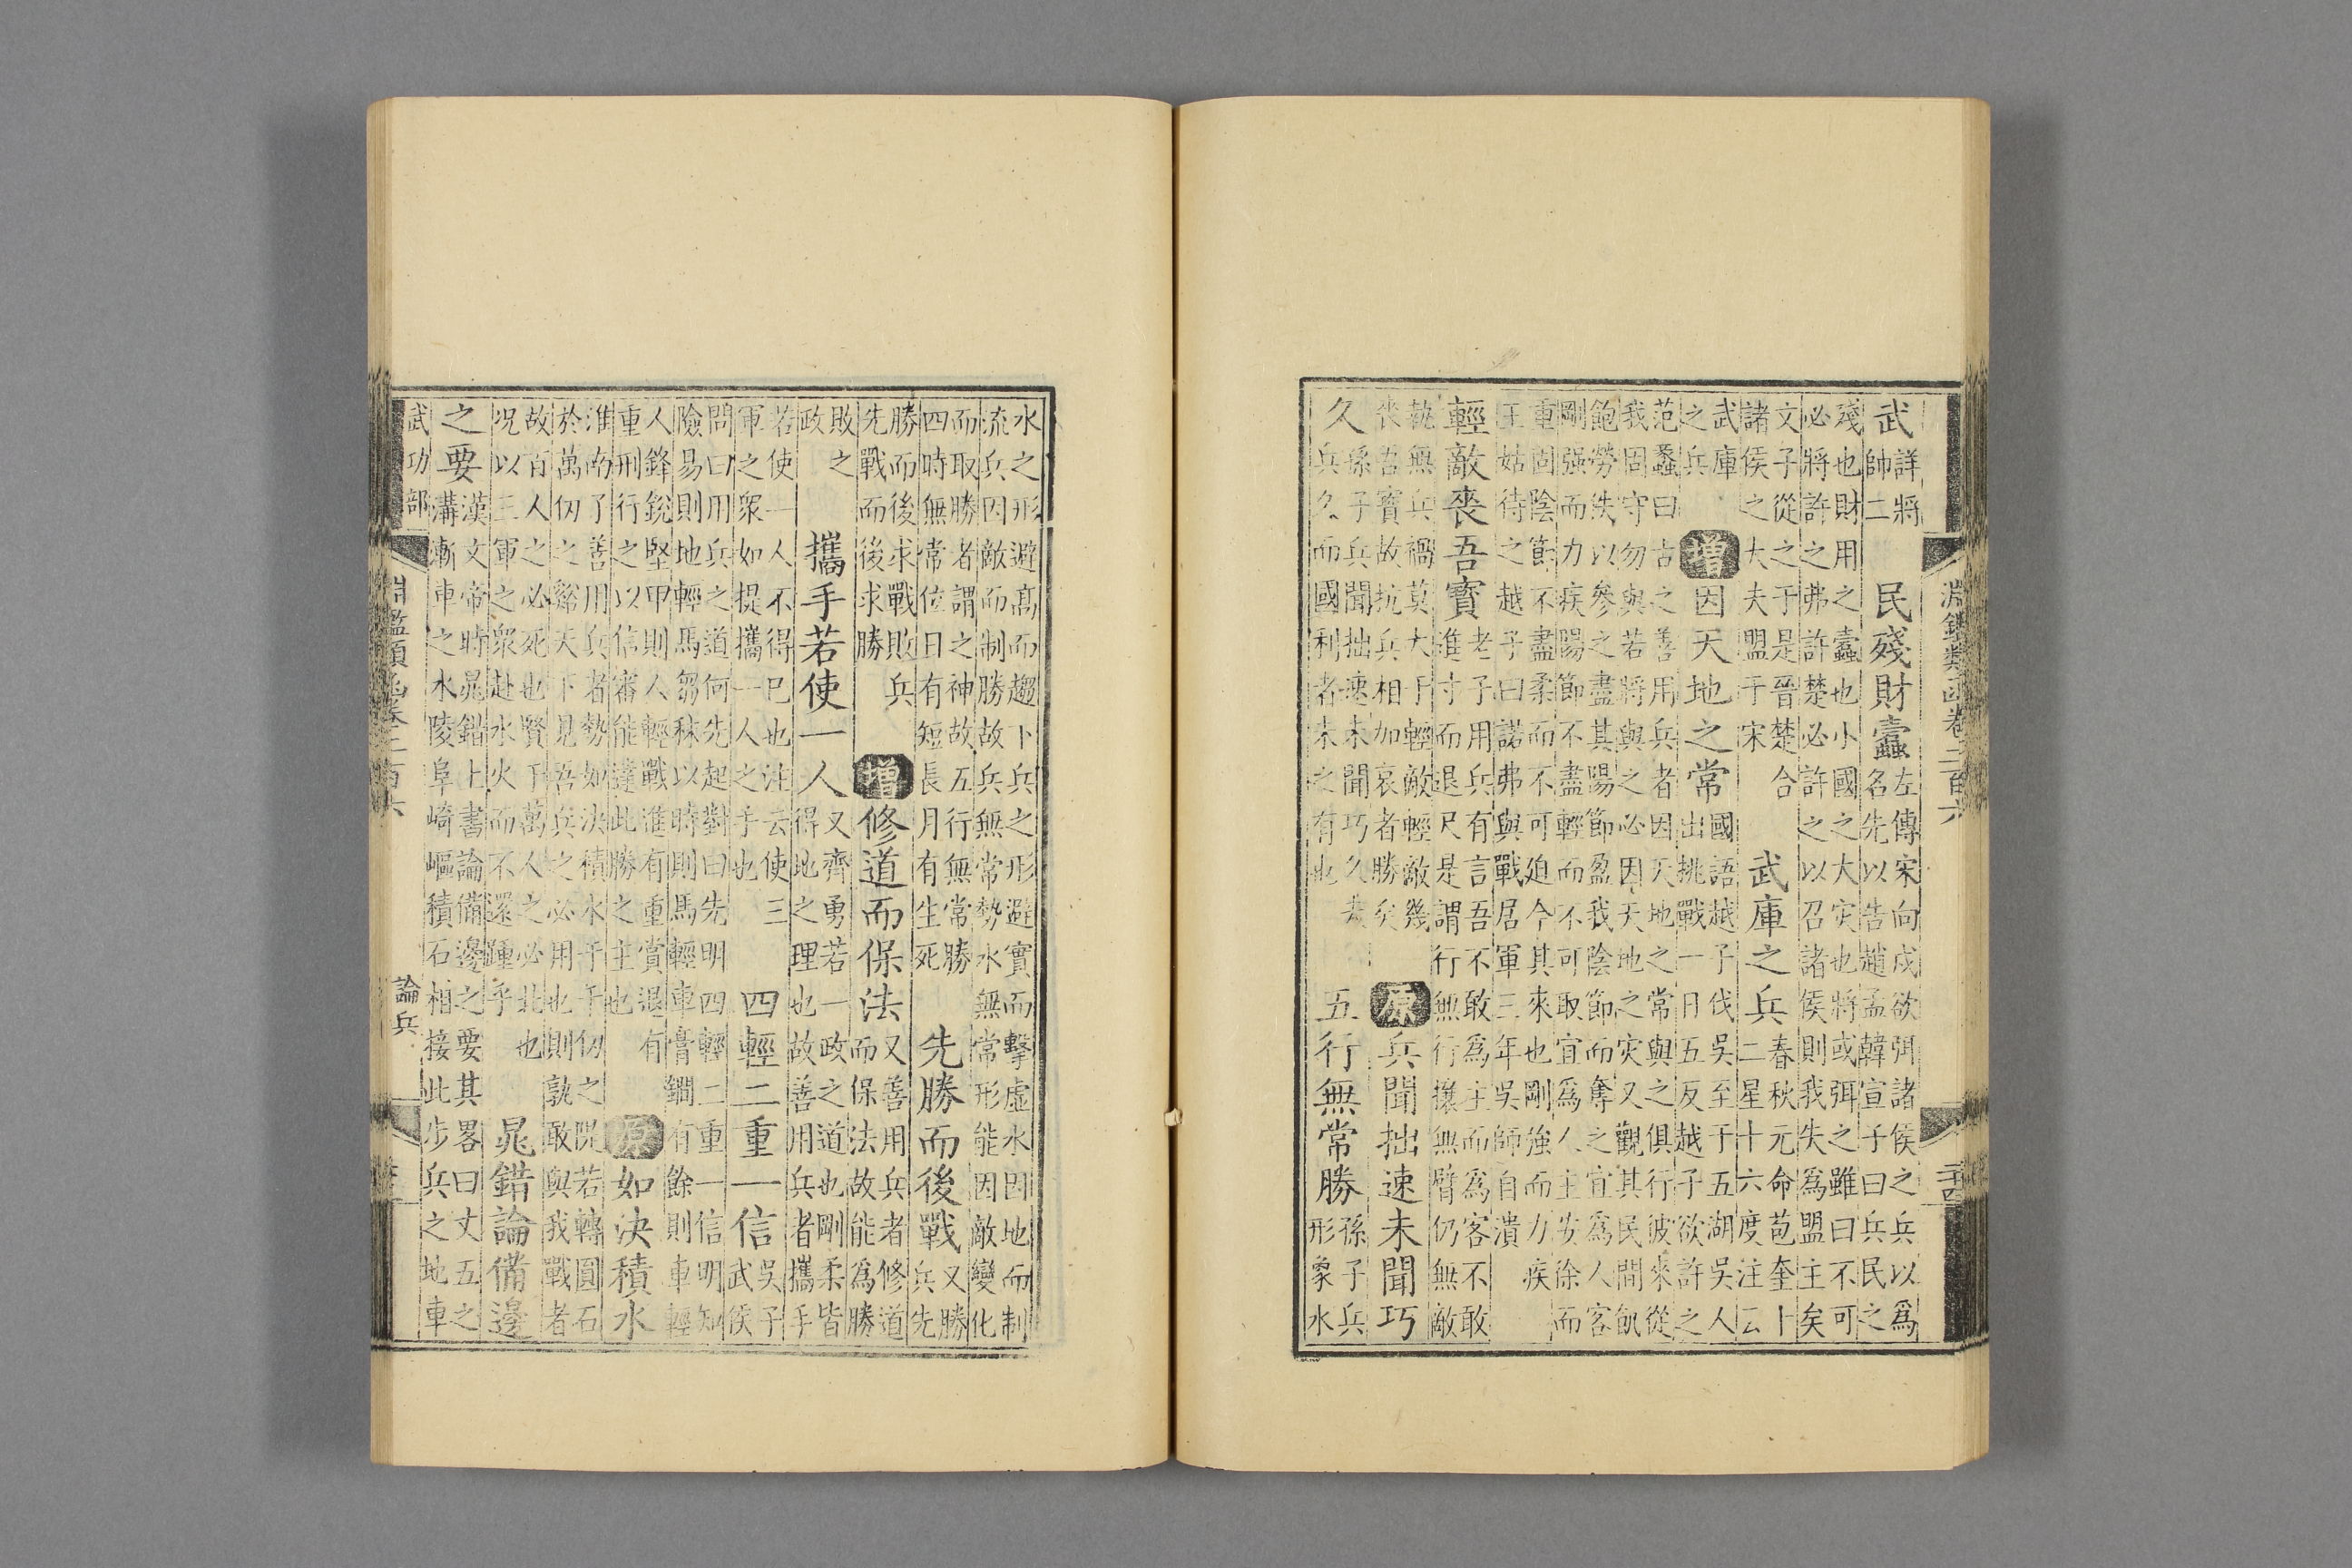 淵鑑類函卷二百六 二十四
武
詳將
帥二
民殘財蠹
左傳宋向戌欲弭諸侯之兵以爲
名先以告趙孟韓宣子曰兵民之
殘也財用之蠹也小國之大灾也將或弭之雖曰不可
必將許之弗許楚必許之以召諸侯則我失爲盟主矣
文子從之于是晉楚合
諸侯之大夫盟于宋
武庫之兵
春秋元命苞奎十
二星十六度注云
武庫
之兵
增
因天地之常
國語越子伐吳至于五湖吳人
出挑戰一日五反越子欲許之
范蠡曰古之善用兵者因天地之常與之俱行彼來從
我固守勿與若將與之必因天地之灾又觀其民間飢
飽勞佚以參之盡其陽節盈我陰節而奪之宜爲人客
剛强而力疾陽節不盡輕而不可取宜爲人主安徐而
重固陰節不盡柔而不可迫今其來也剛強而力疾
王姑待之越子曰諾弗與戰居軍三年吳師自潰
輕敵喪吾寶
老子用兵有言吾不敢爲主而爲客不敢
進寸而退尺是謂行無行攘無臂仍無敵
執無兵禍莫大于輕敵輕敵幾
喪吾寶故抗兵相加哀者勝矣
原
兵聞拙速未聞巧
久
孫子兵聞拙速未聞巧久夫
兵久而國利者未之有也
五行無常勝
孫子兵
形象水
水之形避高而趨下兵之形避實而擊虛水因地而制
流兵因敵而制勝故兵無常勢水無常形能因敵變化
而取勝者謂之神故五行無常勝
四時無常位日有短長月有生死
先勝而後戰
又勝
兵先
勝而後求戰敗兵
先戰而後求勝
增
修道而保法
又善用兵者修道
而保法故能爲勝
敗之
政
攜手若使一人
又齊勇若一政之道也剛柔皆
得地之理也故善用兵者攜手
若使一人不得已也注云使三
軍之衆如提攜一人之手也
四輕二重一信
吳子
武侯
問曰用兵之道何先起對曰先明四輕二重一信明知
險易則地輕馬芻秣以時則馬輕車膏鐧有餘則車輕
人鋒銳堅甲則人輕戰進有重賞退有
重刑行之以信審能達此勝之主也
原
如決積水
淮南子善用兵者勢如決積水于千仞之隄若轉圓石
於萬仞之谿天下見吾兵之必用也則孰敢與我戰者
故百人之必死也賢于萬人之必北也
况以三軍之衆赴水火而不還踵乎
晁錯論備邊
之要
漢文帝時晁錯上書論備邊之要其畧曰丈五之
溝漸車之水陵阜崎嶇積石相接此步兵之地車
武功部 淵鑑類函卷二百六 論兵